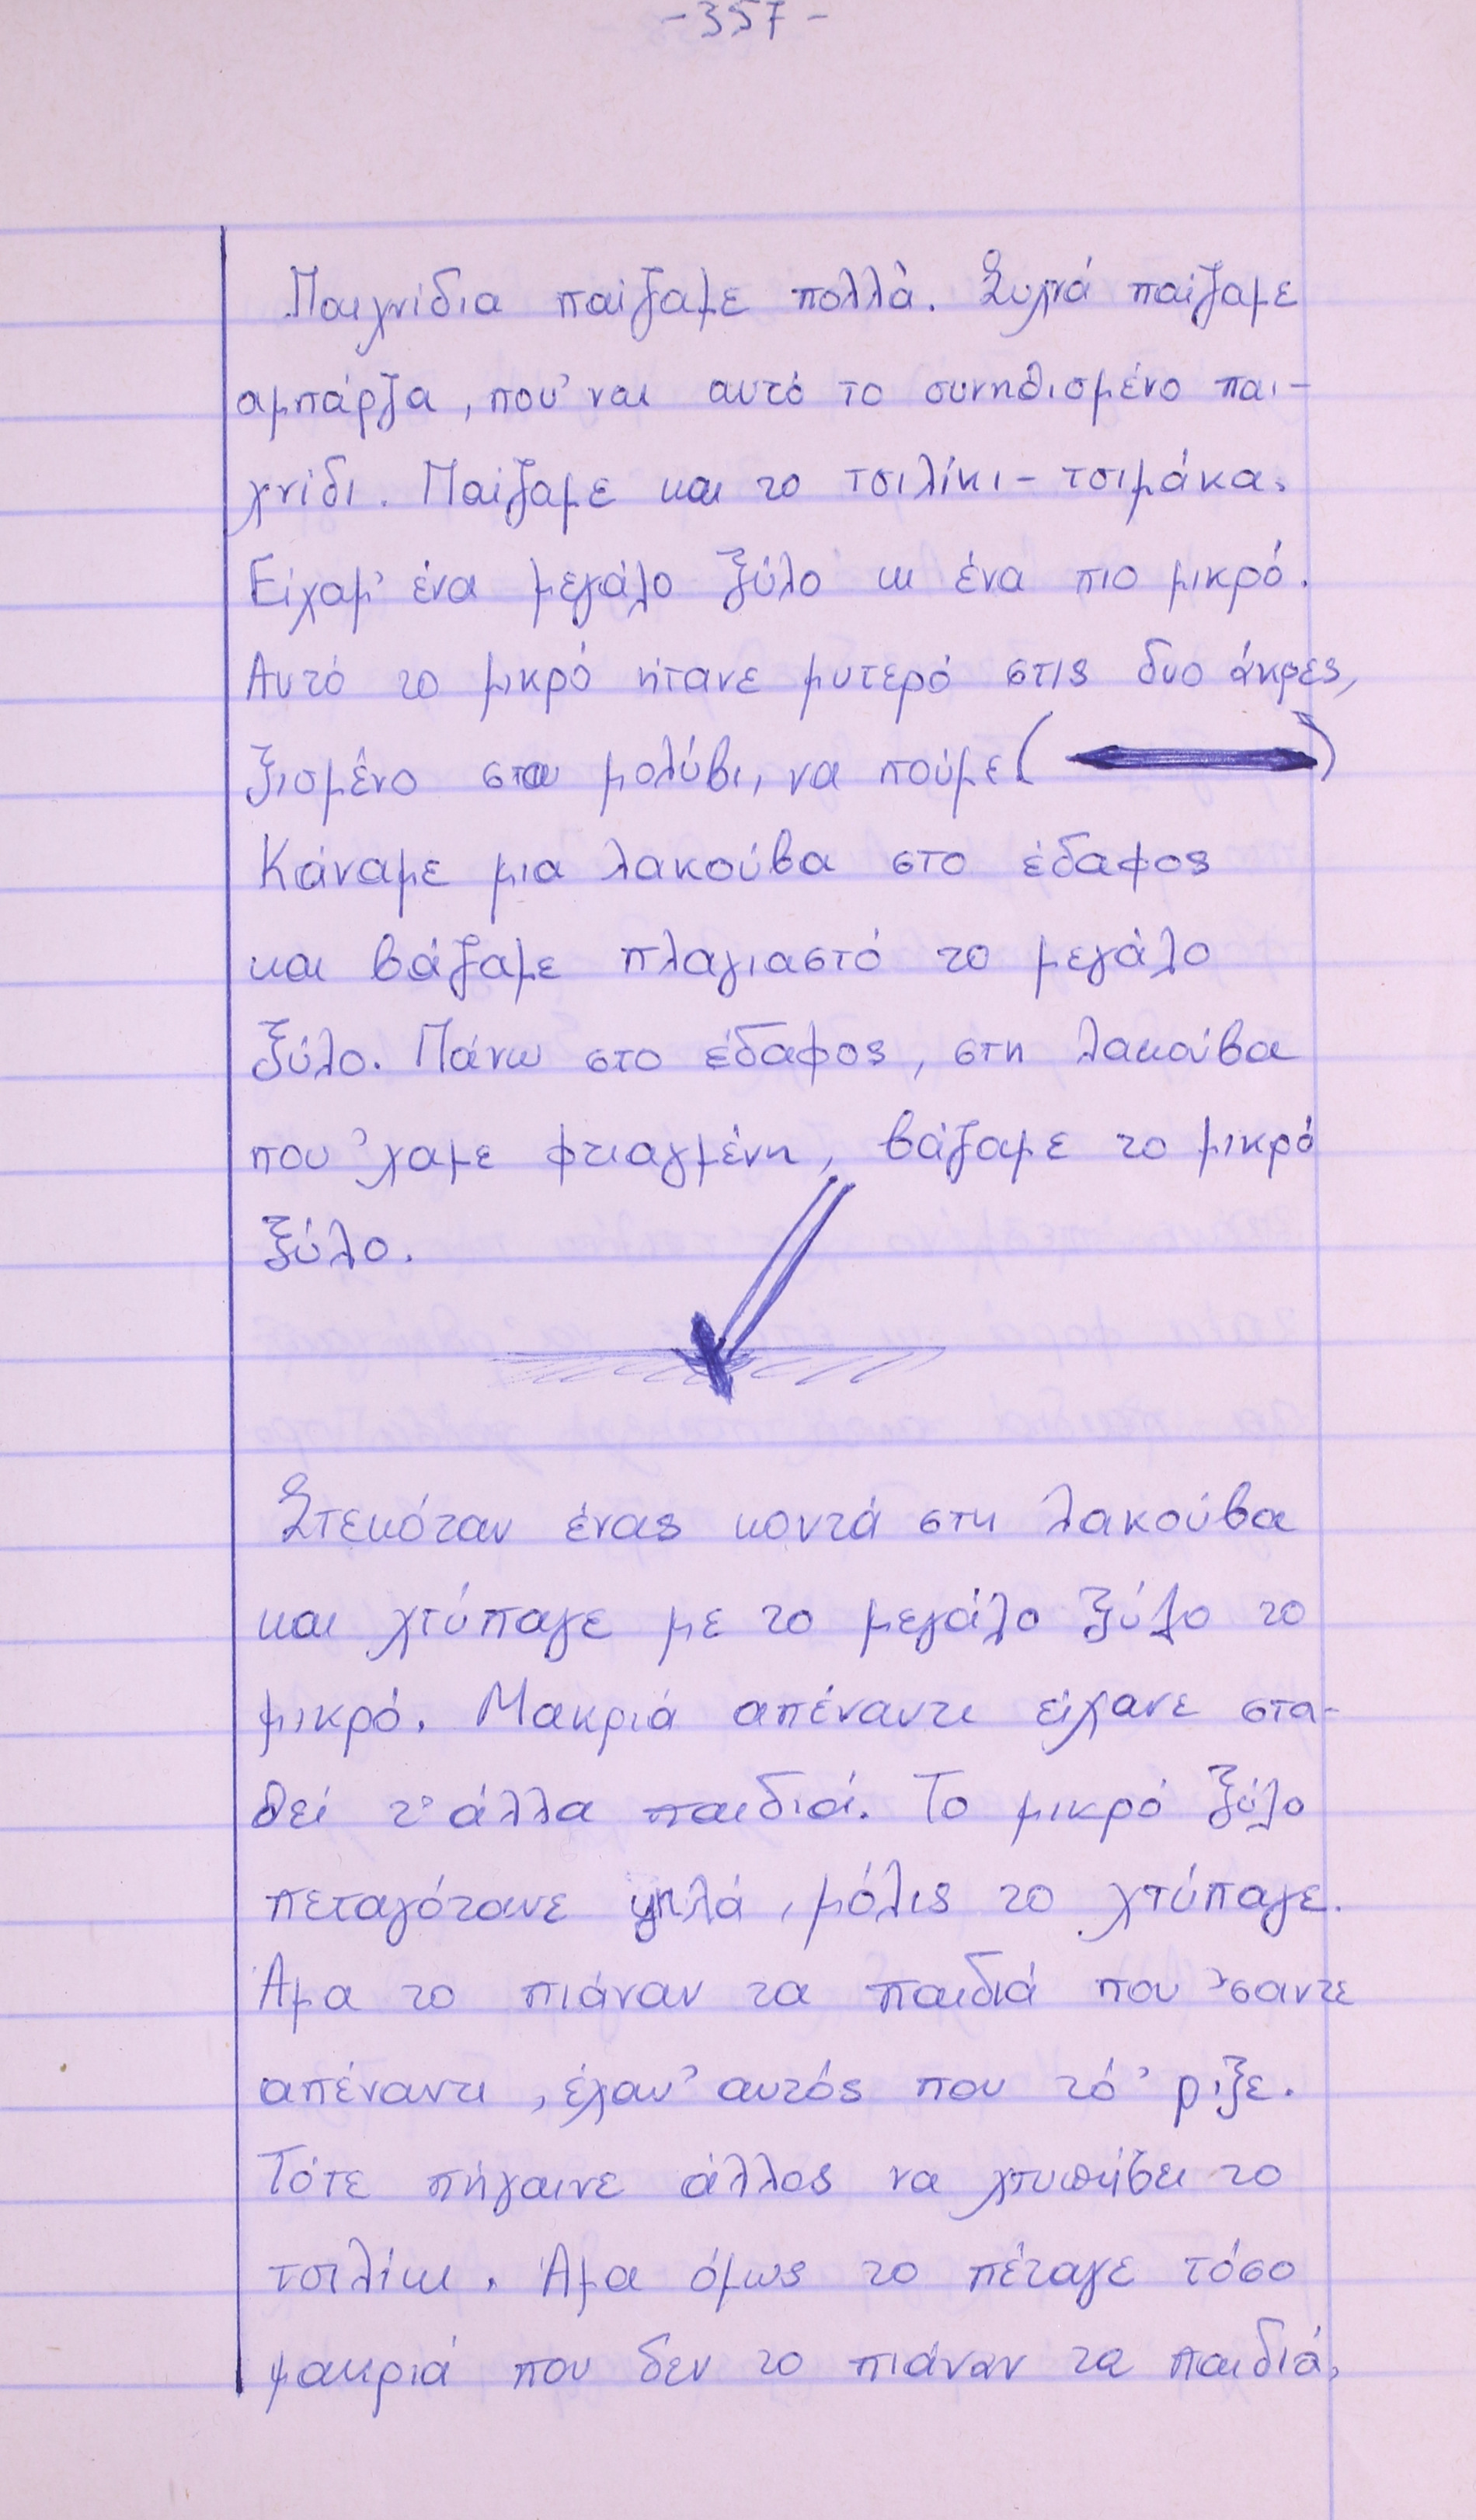 -357-
Παιχνίδια παίζαμε πολλά. Συχνά παίζαμε
αμπάρζα, που' ναι αυτό το συνηθισμένο παι-
χνίδι. Παίζαμε και το τσιλίκι - τσιμάκα.
Είχαμ' ένα μεγάλο ξύλο κι ένα πιο μικρό.
Αυτό το μικρό ήτανε μυτερό στις δυο άκρες,
ξισμένο σαν μολύβι, να πούμε ( )
Κάναμε μια λακούβα στο έδαφος
και βάζαμε πλαγιαστό το μεγάλο
ξύλο. Πάνω στο έδαφος, στη λακούβα
που 'χαμε φτιαγμένη, βάζαμε το μικρό
ξύλο.
Στεκόταν ένας κοντά στη λακούβα
και χτύπαγε με το μεγάλο ξύλο το
μικρό. Μακριά απέναντι είχανε στα-
θεί τ' άλλα παιδιά. Το μικρό ξύλο
πεταγότανε ψηλά, μόλις το χτύπαγε.
Άμα το πιάναν τα παιδιά που 'σαντε
απέναντι, έχαν' αυτός που τό' ριξε.
Τότε πήγαινε άλλος να χτυπήσει το
τσιλίκι. Άμα όμως το πέταγε τόσο
μακριά που δεν το πιάναν τα παιδιά,